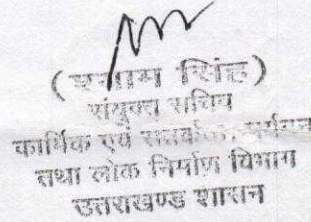 (श्याम सिंह)
संयुक्त सचिव
कार्मिक एवं सतर्कता
तथा लोक निर्माण विभाग
उत्तराखण्ड शासन